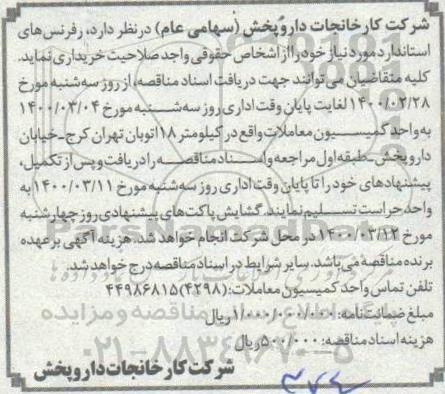 شرکت کارخانجات داروپخش (سهامی عام) درنظر دارد، رفرنس‌های
استاندارد مورد نیاز خود را از اشخاص حقوقی واجد صلاحیت خریداری نماید.
کلیه متقاضیان می‌توانند جهت دریافت اسناد مناقصه، از روز سه‌شنبه مورخ
۱۴۰۰/۰۲/۲۸ لغایت پایان وقت اداری روز سه‌شنبه مورخ ۱۴۰۰/۰۳/۰۴
به واحد کمیسیون معاملات واقع در کیلومتر ۱۸ اتوبان تهران کرج-خیابان
داروپخش-طبقه اول مراجعه و اسناد مناقصه را دریافت و پس از تکمیل،
پیشنهادهای خود را تا پایان وقت اداری روز سه‌شنبه مورخ ۱۴۰۰/۰۳/۱۱ به
واحد حراست تسلیم نمایند. گشایش پاکت‌های پیشنهادی روز چهارشنبه
مورخ ۱۴۰۰/۰۳/۱۲ در محل شرکت انجام خواهد شد. هزینه آگهی برعهده
برنده مناقصه می‌باشد. سایر شرایط در اسناد مناقصه درج خواهد شد.
تلفن تماس واحد کمیسیون معاملات: (۴۲۹۸) ۴۴۹۸۶۸۱۵
مبلغ ضمانت‌نامه: ۱/۰۰۰/۰۰۰/۰۰۰ ریال
هزینه اسناد مناقصه: ۵۰۰/۰۰۰ ریال
شرکت کارخانجات داروپخش
ParsNamadData
۰۲۱-۸۸۳۴۹۶۷۰-۵